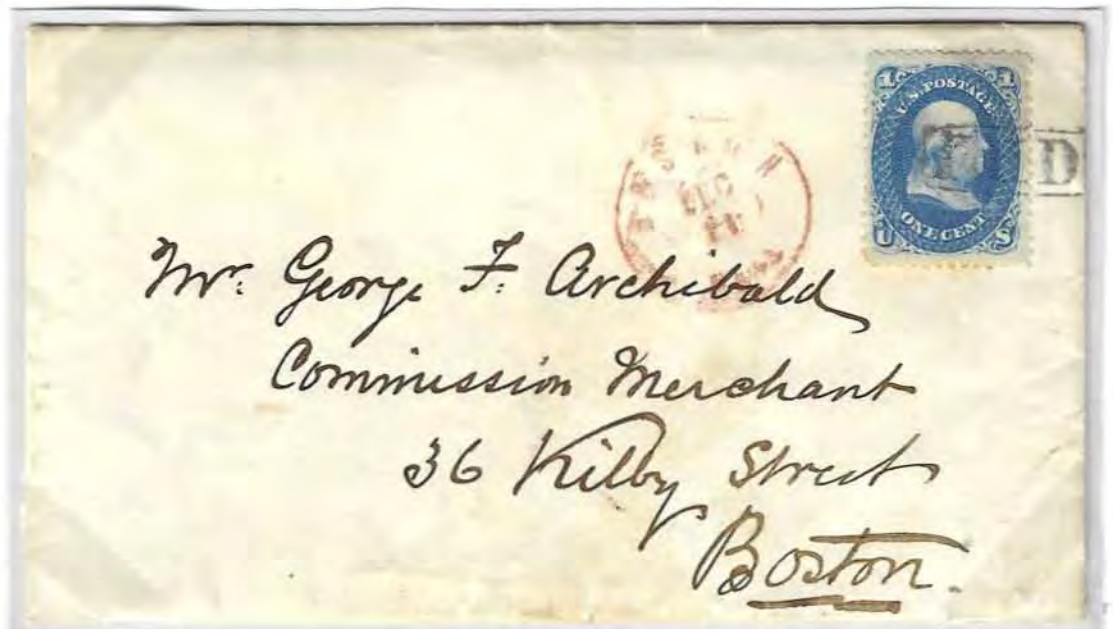 1 1
U.S. POSTAGE
ONE CENT
U S
D
Mr. George F. Archibald
Commission Merchant
36 Kilby Street
Boston.